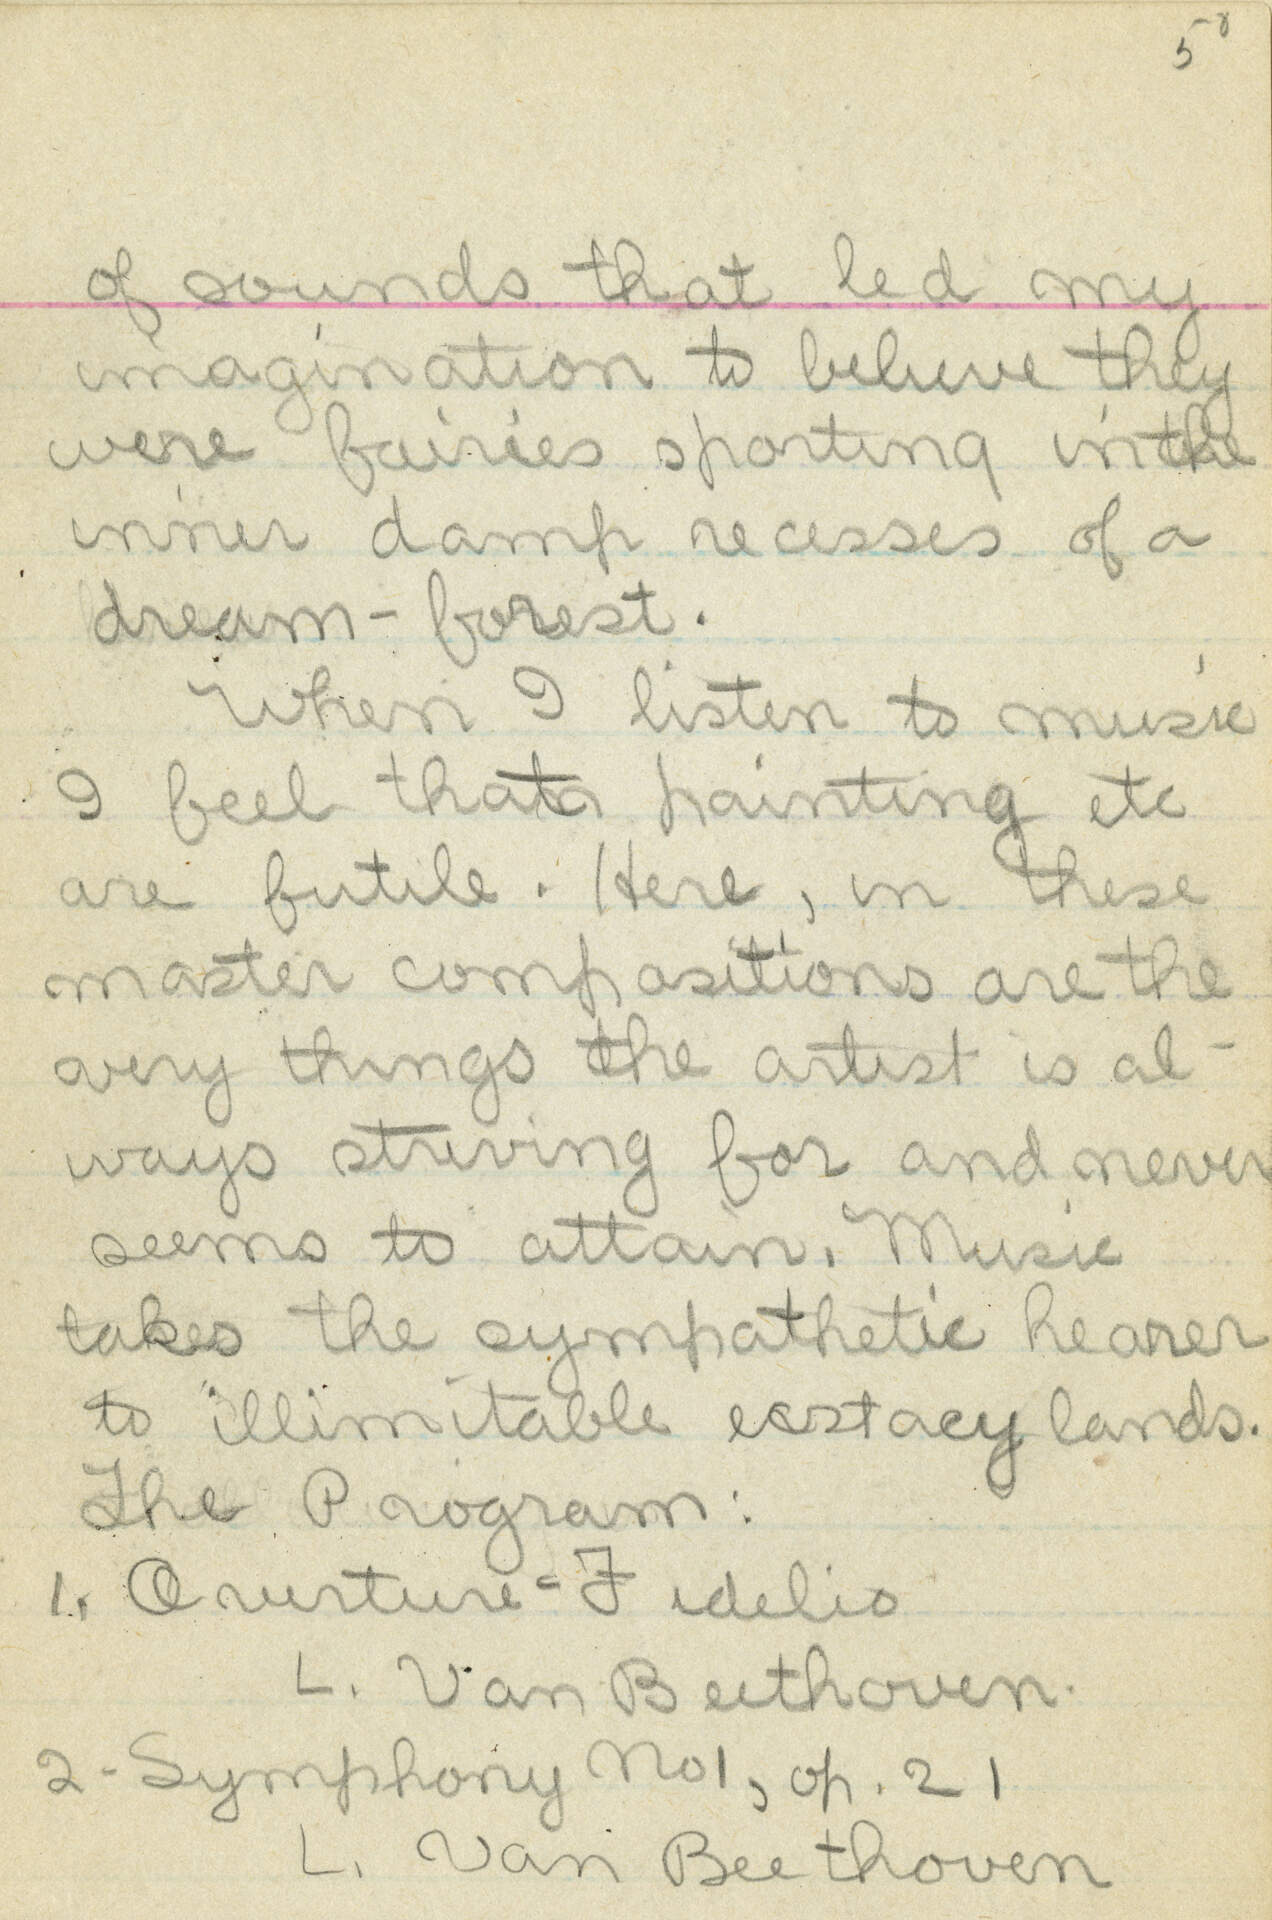 58
of sounds that led my
imagination to believe they
were fairies sporting in the
inner damp recesses of a
dream-forest.
When I listen to music
I feel that painting etc
are futile. Here, in these
master compositions are the
very things the artist is al-
ways striving for and never
seems to attain. Music
takes the sympathetic hearer
to illimitable ecstacy lands.
The Program:
1. Overture - Fidelio
L. Van Beethoven.
2 - Symphony No 1, op. 21
L. Van Beethoven